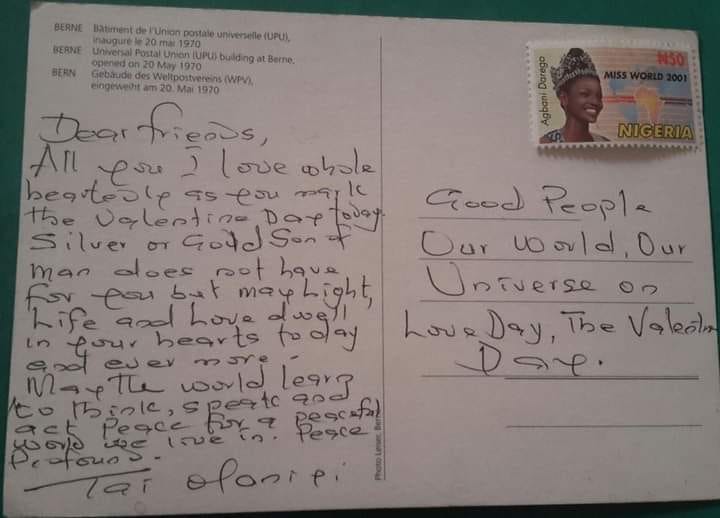 BERNE Bâtiment de l'Union postale universelle (UPU),
inauguré le 20 mai 1970
BERNE Universal Postal Union (UPU) building at Berne,
opened on 20 May 1970
BERN Gebäude des Weltpostvereins (WPV),
eingeweiht am 20. Mai 1970
Dear friends,
All you I love whole
heartedly as you mark
the Valentine Day today.
Silver or Gold Son of
man does not have
for you but may Light,
Life and Love dwell
in your hearts today
and ever more.
May the world learn
to think, speak and
act Peace for a peaceful
world we live in. Peace
Profound.
Tai Olonipi
Photo Leiser, Bern
Agbani Darego
N50
MISS WORLD 2001
NIGERIA
Good People
Our World, Our
Universe on
Love Day, The Valentine
Day.